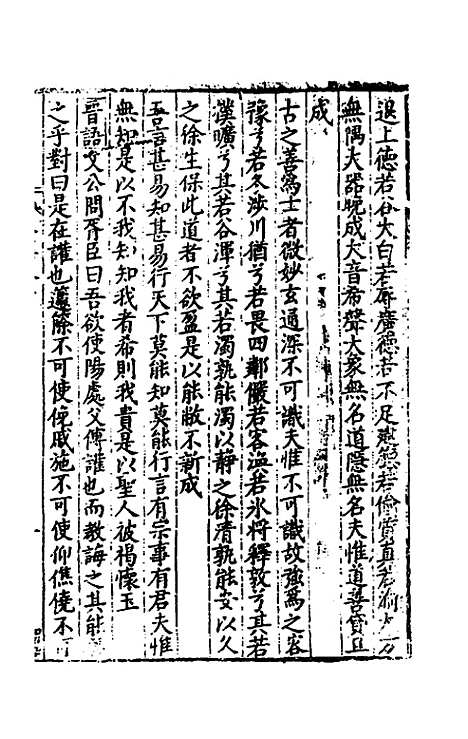 退上徳若谷大白若辱廣徳若不足建徳若偷質直若
無隅大器晚成大音希聲大象無名道隱無名夫惟道善貸且
成
古之善為士者微妙玄通深不可識夫惟不可識故強為之容
豫兮若冬涉川猶兮若畏四鄰儼若客渙若氷將釋敦兮其若
樸曠兮其若谷渾兮其若濁孰能濁以静之徐清孰能安以久
之徐生保此道者不欲盈是以能敝不新成
吾言甚易知甚易行天下莫能知莫能行言有宗事有君夫惟
無知是以不我知知我者希則我貴是以聖人被褐懷玉
晉語文公問胥臣曰吾欲使陽處父傅讙也而教誨之其能
之乎對曰是在讙也籧篨不可使俛戚施不可使仰僬僥不